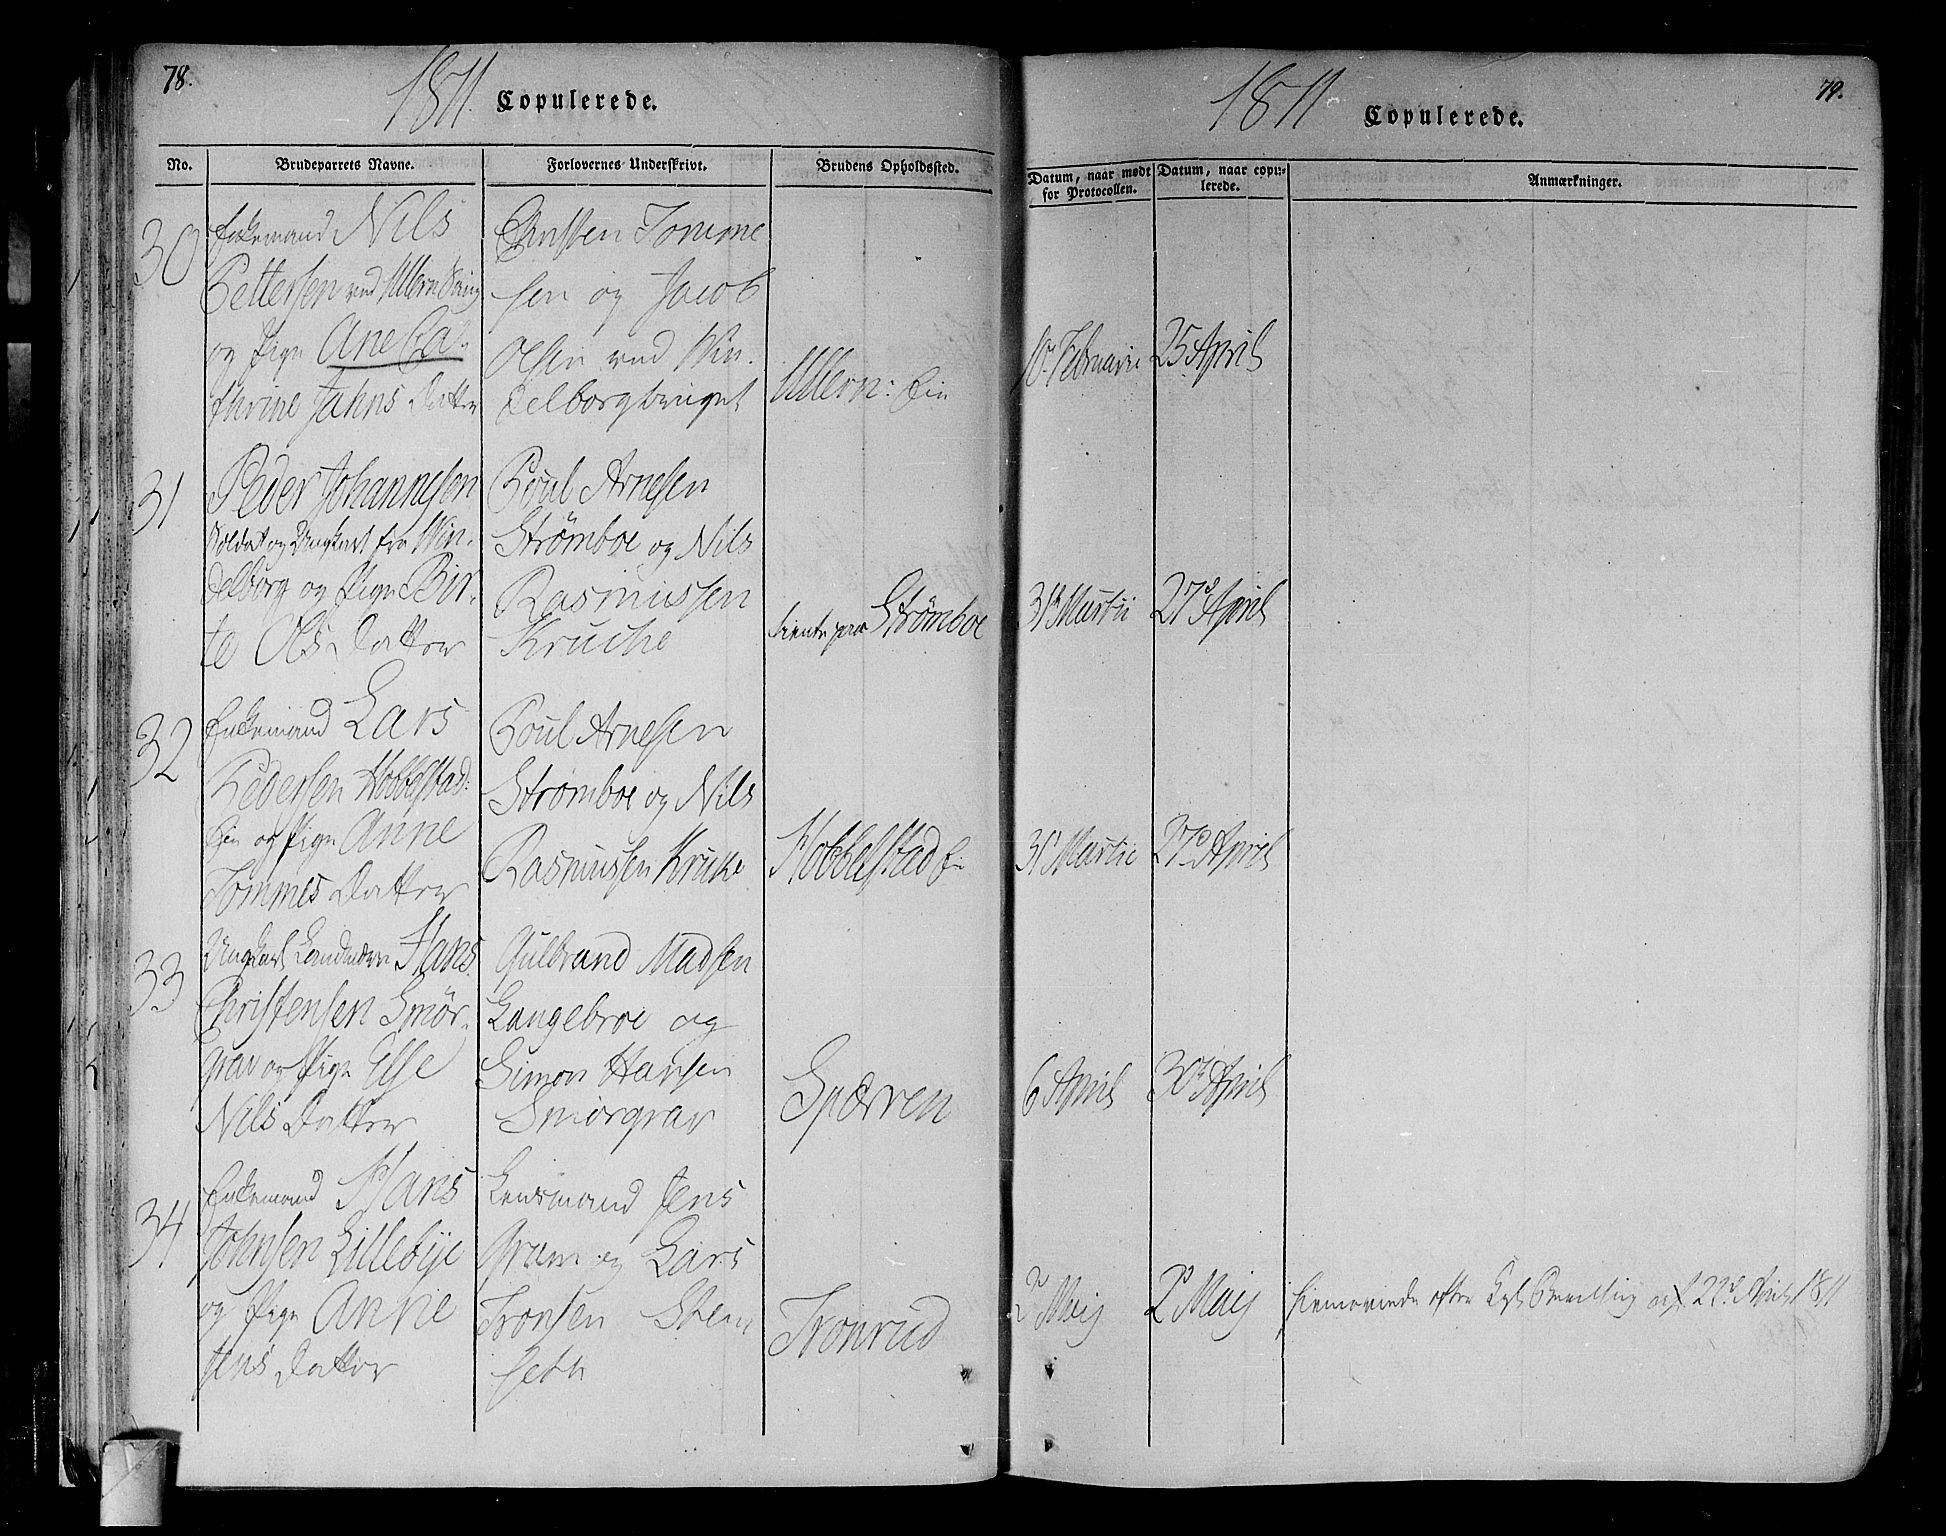 78.
1811.
Copulerede.
No.
Brudeparrets Navne.
Forlovernes Underskrivt.
Brudens Opholdssted.
30
Enkemand Nils
Pettersen ved Ullern
og Pige Ane Ca-
thrine Jahns Datter
Christen Tomme
sen og Jacob
Olsen ved Win-
delborgbruget
Ullern:
31
Peder Johannesen
Soldat og Ungkarl fra Win-
delborg og Pige Bir-
te Ols Datter
Poul Arnesen
Strømboe og Nils
Rasmussen
Kruche
tienende paa Strømboe
32
Enkemand Lars
Pedersen Hobbelstad:
Eie og Pige Anne
Tommes Datter
Poul Arnesen
Strømboe og Nils
Rasmussen Kruke
Hobbelstad
33
Ungkarl Landværn Hans
Christensen Smør-
grav og Pige Else
Nils Datter
Gulbrand Madsen
Langebroe og
Simon Hansen
Smørgrav
Spærren
34
Enkemand Hans
Johnsen Lillebye
og Pige Anne
Jens Datter
Lensmand Jens
Gram og Lars
Tronsen Steen
seth
Tronrud
79.
1811
Copulerede.
Datum, naar mødt
for Protocollen.
Datum, naar copu-
lerede.
Anmærkninger.
10. Februarii
25 April
31 Martii
27d April
31 Martii
27d April
6 April
30d April
2d Maij
2d Maij
hiemmeviede efter Kgl. Bevilling af 22d April 1811